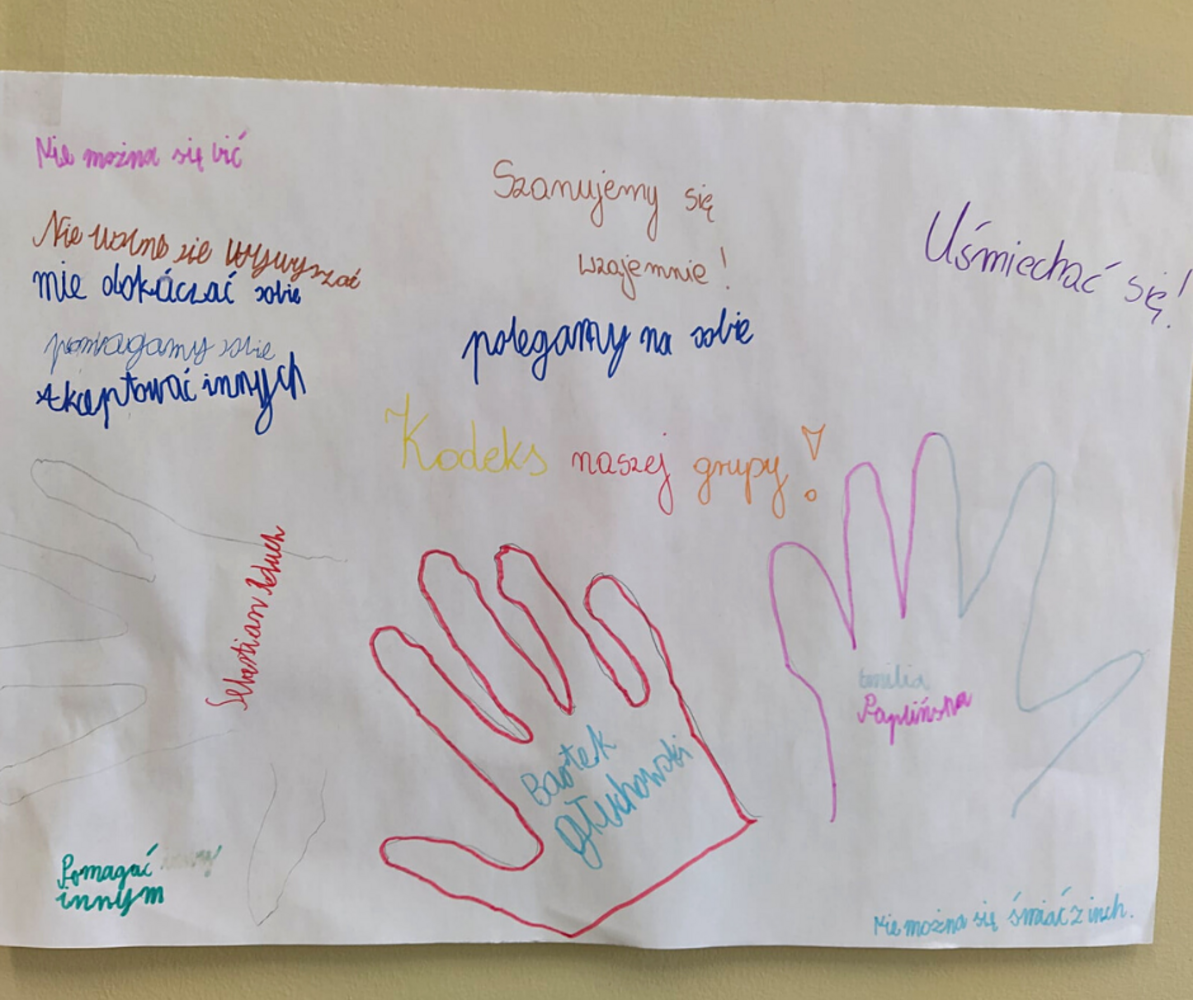 Nie można się bić
Nie wolno sie wywyszać
nie dokáczać sobie
pomagamy sobie
Akceptować innych
Szanujemy się
wzajemnie!
polegamy na sobie
Uśmiechać się!
Kodeks naszej grupy!
Sebastian
Bartek
Głuchowski
Emilia
Paplińska
Pomagać
innym
Nie można się śmiać z inch.